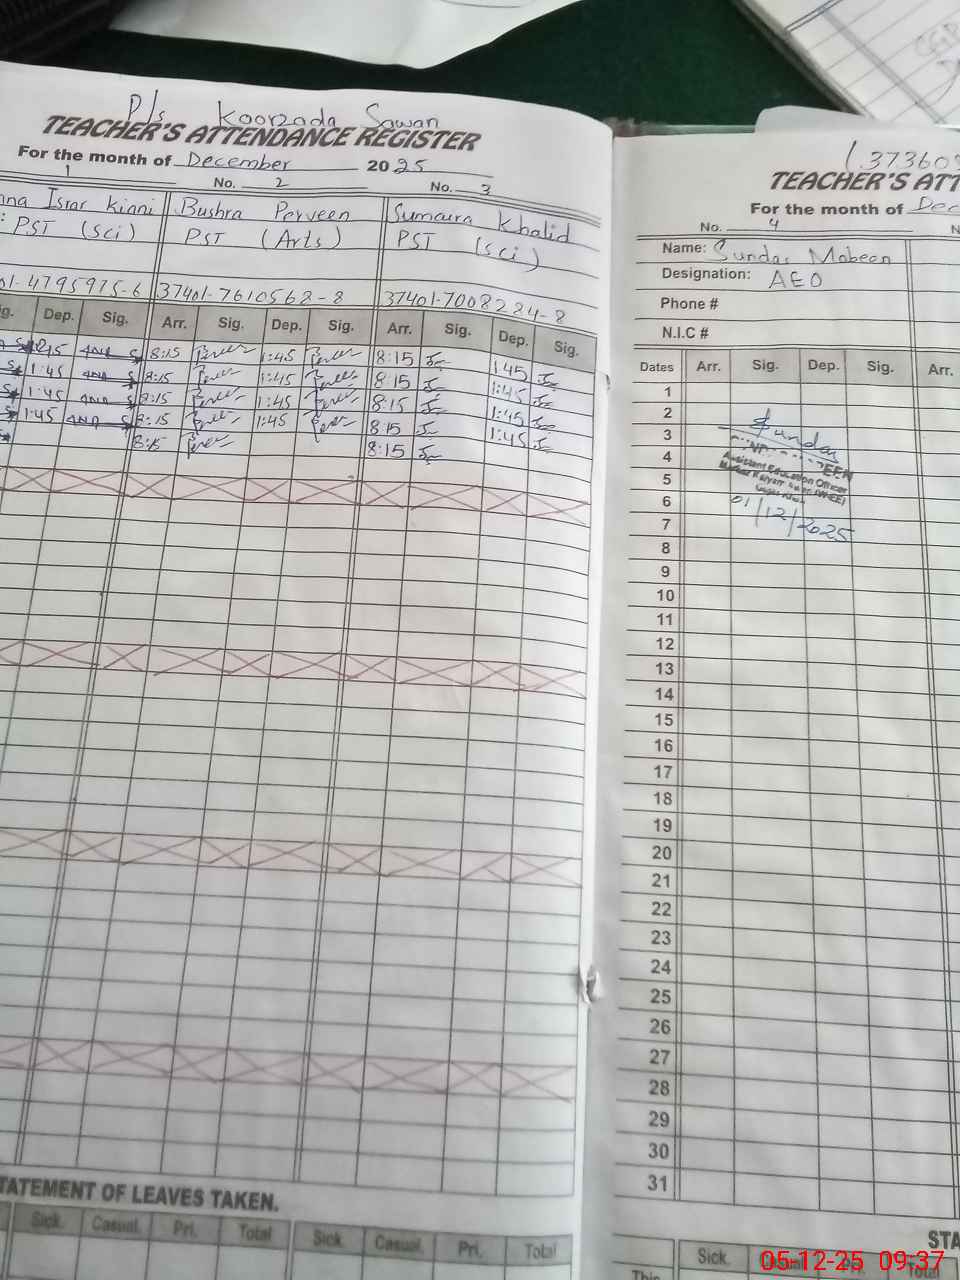 P/s Koorzada Sawan
TEACHER'S ATTENDANCE REGISTER
For the month of December 2025
1 No. 2 No. 3
nna Israr Kinni Bushra Perveen Sumaira Khalid
PST (Sci) PST (Arts) PST (Sci)
01-4795975-6 37401-7610562-8 37401-7008224-8
ig. Dep. Sig. Arr. Sig. Dep. Sig. Arr. Sig. Dep. Sig.
8:15 1:45 8:15 1:45
1:45 8:15 1:45 8:15 1:45
1:45 8:15 1:45 8:15 1:45
1:45 8:15 1:45 8:15 1:45
8:15 8:15
STATEMENT OF LEAVES TAKEN.
Sick. Casual. Pri. Total Sick. Casual. Pri. Total
(373603
TEACHER'S ATT
For the month of Dec
No. 4
Name: Sundas Mobeen
Designation: AEO
Phone #
N.I.C #
Dates Arr. Sig. Dep. Sig. Arr.
1
2
3 Sundas
4 EEN
5 Assistant Education Officer
6 01/12/2025
7
8
9
10
11
12
13
14
15
16
17
18
19
20
21
22
23
24
25
26
27
28
29
30
31
STA
Sick. Casual. Pri. Total
This
05-12-25 09:37